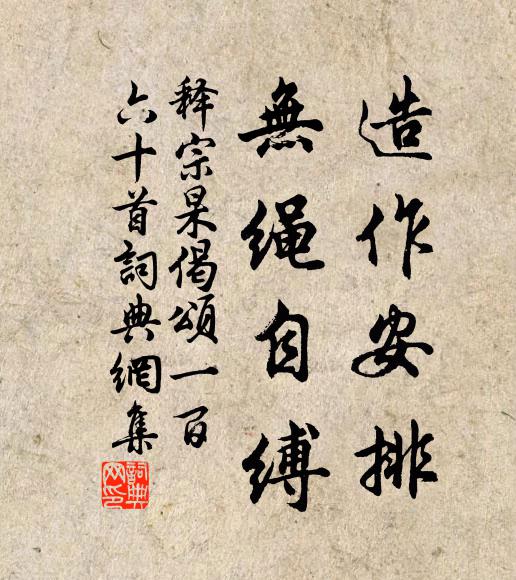 造作安排
無绳自缚
释宗杲偈颂一百
六十首詞典網集
詞典
网印